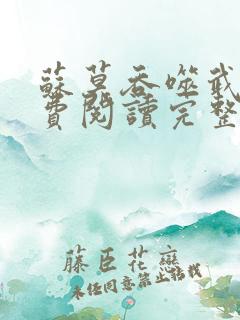 蘇莫吞噬武
費閱讀完整
藤臣花戀
未经同意禁止转载